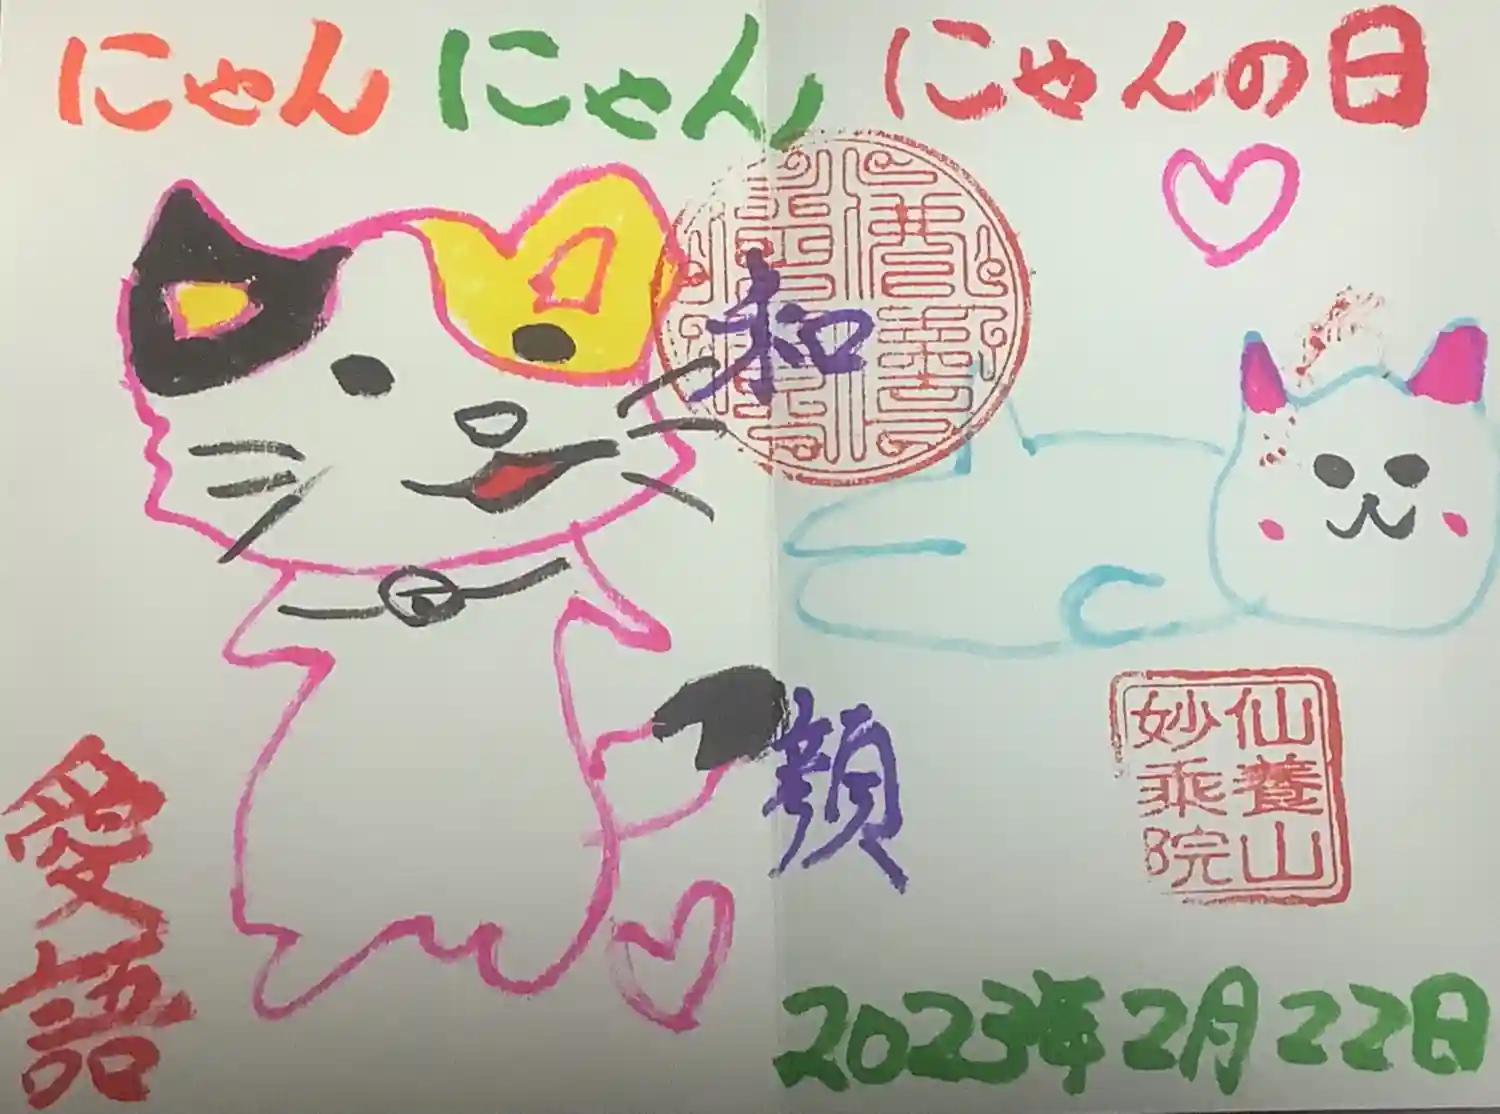 にゃん にゃん にゃんの日
和顔
愛語
仙養山
妙乗院
2023年2月22日